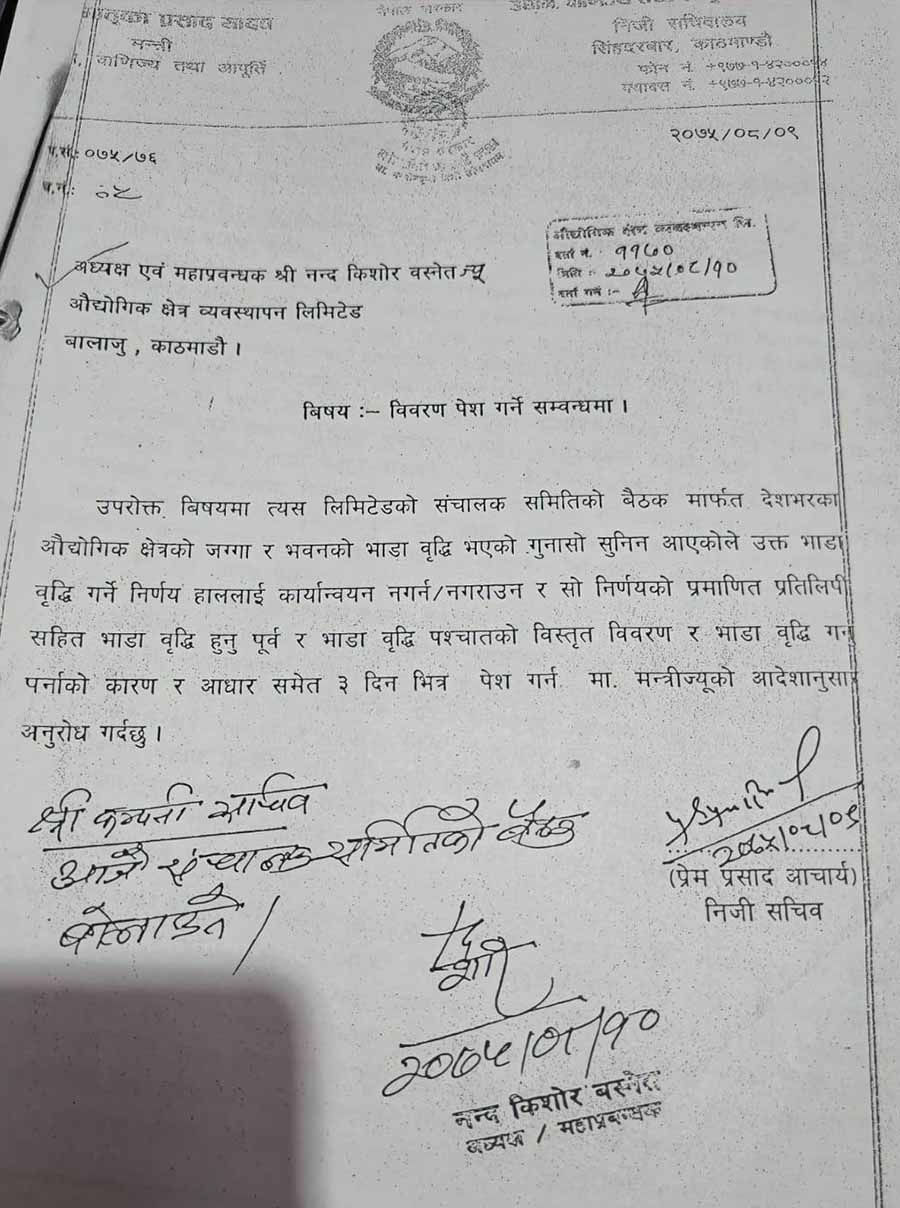 प्रसाद यादव
मन्त्री
वाणिज्य तथा आपूर्ति
नेपाल सरकार
निजी सचिवालय
सिंहदरबार, काठमाण्डौ
फोन नं. +९७७-१-४२०००
२०७५/०८/०९
प.सं.: ०७५/७६
च.नं.:
औद्योगिक क्षेत्र व्यवस्थापन लि.
दर्ता नं. ११८०
मिति :- २०७५/०८/१०
दर्ता गर्ने :-
अध्यक्ष एवं महाप्रवन्धक श्री नन्द किशोर वस्नेतज्यू
औद्योगिक क्षेत्र व्यवस्थापन लिमिटेड
बालाजु , काठमाडौ ।
बिषय :– विवरण पेश गर्ने सम्वन्धमा ।
उपरोक्त बिषयमा त्यस लिमिटेडको संचालक समितिको बैठक मार्फत देशभरका
औद्योगिक क्षेत्रको जग्गा र भवनको भाडा वृद्धि भएको गुनासो सुनिन आएकोले उक्त भाडा
वृद्धि गर्ने निर्णय हाललाई कार्यान्वयन नगर्न/नगराउन र सो निर्णयको प्रमाणित प्रतिलिपी
सहित भाडा वृद्धि हुनु पूर्व र भाडा वृद्धि पश्चातको विस्तृत विवरण र भाडा वृद्धि गर्नु
पर्नाको कारण र आधार समेत ३ दिन भित्र पेश गर्न मा. मन्त्रीज्यूको आदेशानुसार
अनुरोध गर्दछु ।
श्री कम्पनी सचिव
आजै संचालक समितिको बैठक
बोलाउने ।
२०७५/०८/०९
(प्रेम प्रसाद आचार्य)
निजी सचिव
२०७५/०८/१०
नन्द किशोर बस्नेत
अध्यक्ष / महाप्रबन्धक